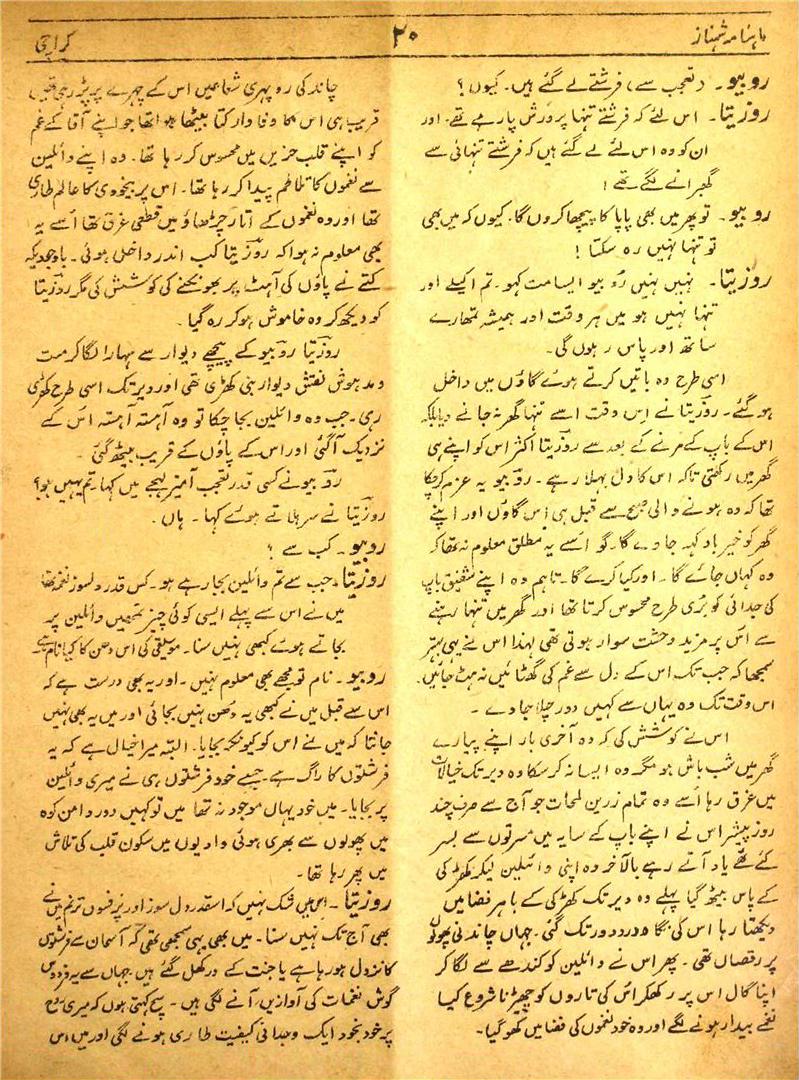 ماہنامہ شہناز
۲۰
کراچی
روبیو۔ (تعجب سے) فرشتے لے گئے ہیں۔ کیوں؟
روزیتا۔ اس لئے کہ فرشتے تنہا پرورش پا رہے تھے۔ اور
ان کو وہ اس لئے لے گئے ہیں کہ فرشتے تنہائی سے
گھبرانے لگے تھے!
روبیو۔ تو پھر میں بھی پاپا کا پیچھا کروں گا۔ کیوں کہ میں بھی
تو تنہا نہیں رہ سکتا!
روزیتا۔ نہیں نہیں روبیو ایسا مت کہو۔ تم اکیلے اور
تنہا نہیں ہو میں ہر وقت اور ہمیشہ تمھارے
ساتھ اور پاس رہوں گی۔
اسی طرح وہ باتیں کرتے ہوئے گاؤں میں داخل
ہو گئے۔ روزیتا نے اس وقت اسے تنہا گھر نہ جانے دیا بلکہ
اس کے باپ کے مرنے کے بعد سے روزیتا اکثر اس کو اپنے ہی
گھر میں رکھتی تاکہ اس کا دل بہلا رہے۔ روبیو یہ عزم کر چکا
تھا کہ وہ ہونے والی صبح سے قبل ہی اس گاؤں اور اپنے
گھر کو خیرباد کہہ جاوے گا۔ گو اسے یہ مطلق معلوم نہ تھا کہ
وہ کہاں جائے گا۔ اور کیا کرے گا۔ تاہم وہ اپنے شفیق باپ
کی جدائی کو بری طرح محسوس کرتا تھا اور گھر میں تنہا رہنے
سے اس پر مزید وحشت سوار ہوتی تھی لہٰذا اس نے یہی بہتر
سمجھا کہ جب تک اس کے دل سے غم کی گھٹائیں نہ ہٹ جائیں۔
اس وقت تک وہ یہاں سے کہیں دور چلا جاوے۔
اس نے کوشش کی کہ وہ آخری بار اپنے پیارے
گھر میں شب باش ہو مگر وہ ایسا نہ کر سکا وہ دیر تک خیالات
میں غرق رہا اسے وہ تمام زرین لمحات جو آج سے صرف چند
روز پیشتر اس نے اپنے باپ کے سایہ میں مسرتوں سے بسر
کئے تھے یاد آتے رہے بالآخر وہ اپنی وائلین لیکر کھڑکی
کے پاس بیٹھ گیا پہلے وہ دیر تک کھڑکی کے باہر فضا میں
دیکھتا رہا اس کی نگاہ دور دور تک گئی۔ جہاں چاندنی پھولوں
پر رقصاں تھی۔ پھر اس نے وائلین کو کندھے سے لگا کر
اپنا گال اس پر رکھکر اس کی تاروں کو چھیڑنا شروع کیا
نغمے بیدار ہونے لگے اور وہ خود نغموں کی فضا میں کھو گیا۔
چاند کی روپہری شعاعیں اس کے چہرے پر پڑ رہی تھیں
قریب ہی اس کا وفادار کتا بیٹھا ہوا تھا جو اپنے آقا کے غم
کو اپنے قلب حزیں میں محسوس کر رہا تھا۔ وہ اپنے وائلین
سے نغموں کا تلاطم پیدا کر رہا تھا۔ اس پر بیخودی کا عالم طاری
تھا اور وہ نغموں کے اتار چڑھاؤ میں قطعی غرق تھا اسے یہ
بھی معلوم نہ ہوا کہ روزیتا کب اندر داخل ہوئی۔ باوجودیکہ
کتے نے پاؤں کی آہٹ پر بھونکنے کی کوشش کی مگر روزیتا
کو دیکھ کر وہ خاموش ہو کر رہ گیا۔
روزیتا روبیو کے پیچھے دیوار سے سہارا لگا کر مست
و مدہوش نقش دیوار بنی کھڑی تھی اور دیر تک اسی طرح کھڑی
رہی۔ جب وہ وائلین بجا چکا تو وہ آہستہ آہستہ اس کے
نزدیک آ گئی اور اس کے پاؤں کے قریب بیٹھ گئی۔
روبیو نے کسی قدر تعجب آمیز لہجے میں کہا۔ تم یہیں ہو؟
روزیتا نے سر ہلاتے ہوئے کہا۔ ہاں۔
روبیو۔ کب سے؟
روزیتا۔ جب سے تم وائلین بجا رہے ہو۔ کس قدر دلسوز نغمہ تھا
میں نے اس سے پہلے ایسی کوئی چیز تمھیں وائلین پر
بجاتے ہوئے کبھی نہیں سنا۔ موسیقی کی اس دھن کا کیا نام ہے۔
روبیو۔ نام تو مجھے بھی معلوم نہیں۔ اور یہ بھی درست ہے کہ
اس سے قبل میں نے کبھی یہ دھن نہیں بجائی اور میں یہ بھی نہیں
جانتا کہ میں نے اس کو کیونکر بجایا۔ البتہ میرا خیال ہے کہ یہ
فرشتوں کا راگ ہے۔ جسے خود فرشتوں ہی نے میری وائلین
پر بجایا۔ میں خود یہاں موجود نہ تھا میں تو کہیں دور دامن کوہ
میں پھولوں سے بھری ہوئی وادیوں میں سکون قلب کی تلاش
میں پھر رہا تھا۔
روزیتا۔ اس میں شک نہیں کہ اسقدر دل سوز اور پرفسوں ترنم میں نے
بھی آج تک نہیں سنا۔ میں بھی یہی سمجھی تھی کہ آسمان سے فرشتوں
کا نزول ہو رہا ہے یا جنت کے در کھل گئے ہیں جہاں سے یہ فردوس
گوش نغمات کی آوازیں آنے لگی ہیں۔ سچ کہتی ہوں کہ میری روح
پر خود بخود ایک وجدانی کیفیت طاری ہونے لگی اور میں اس